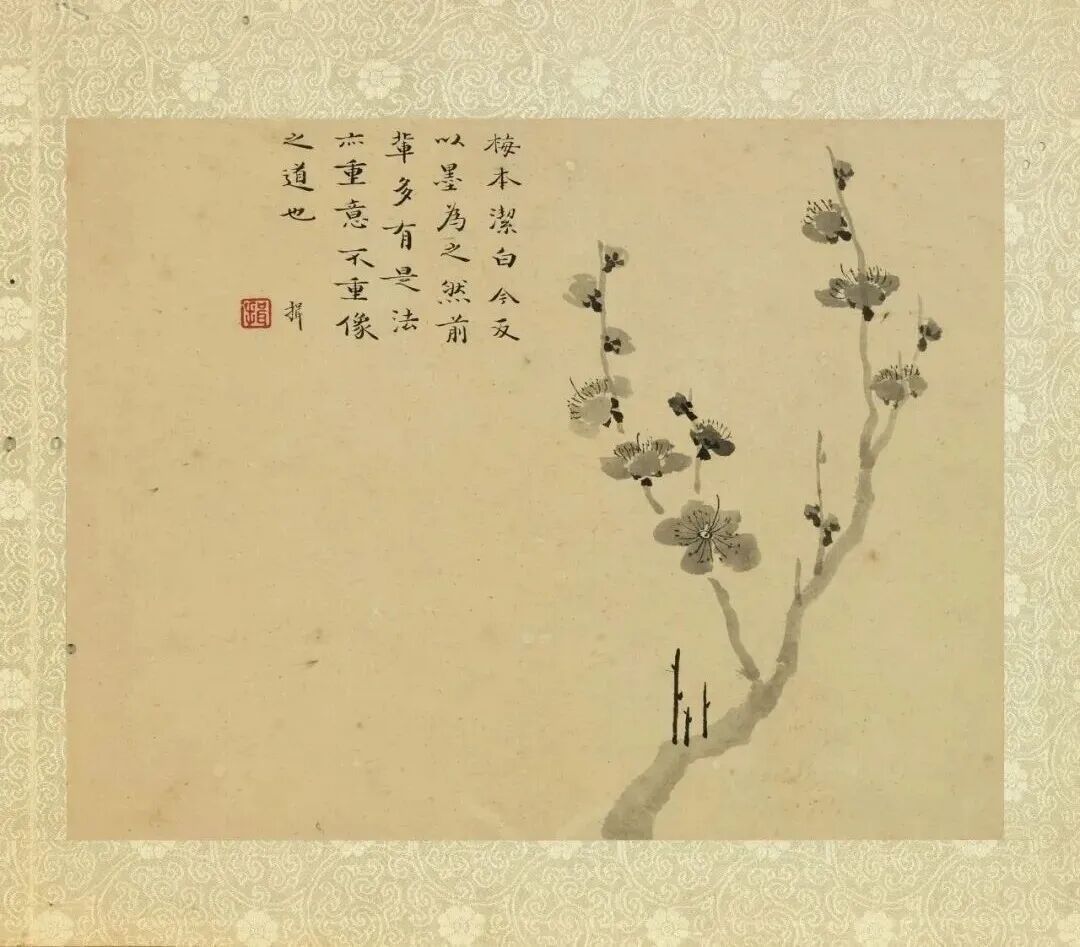 梅本潔白今反
以墨為之然前
輩多有是法
亦重意不重像
之道也 揖